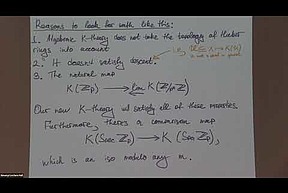 Reasons to look for smth like this:
1. Algebraic K-theory does not take the topology of Huber
rings into account
2. It doesn't satisfy descent.
3. The natural map
K(ℤₚ) → lim K(ℤ/pⁿℤ)
Our new K-theory will satisfy all of these properties.
Furthermore, there's a comparison map
K(Spec ℤₚ) → K(Spa ℤₚ),
which is an iso modulo any m.